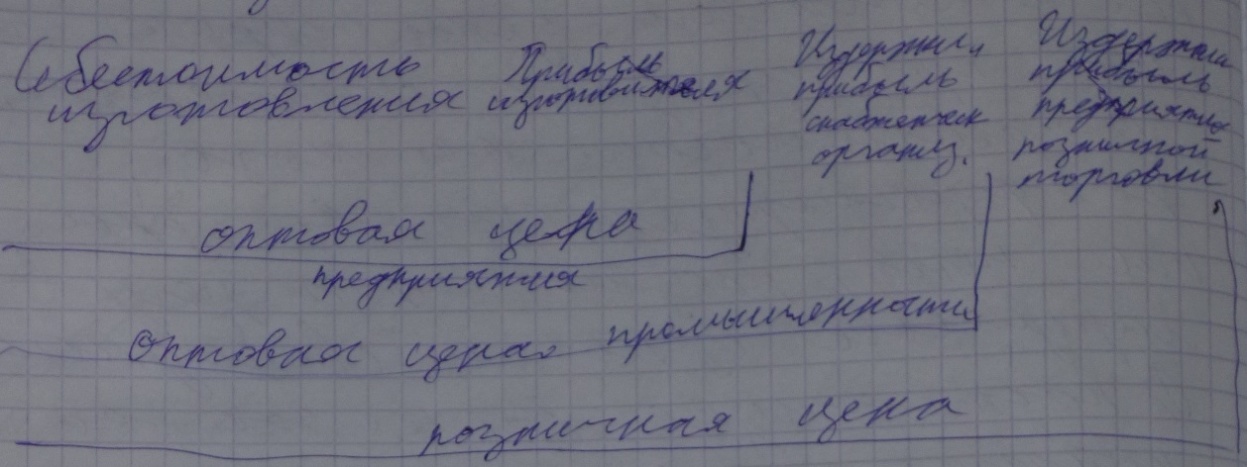 Себестоимость
изготовления
Прибыль
изготовителя
Издержки и
прибыль
снабженческ
организ.
Издержки
прибыль
предприятия
розничной
торговли
оптовая цена
предприятия
Оптовая цена промышленности
розничная цена